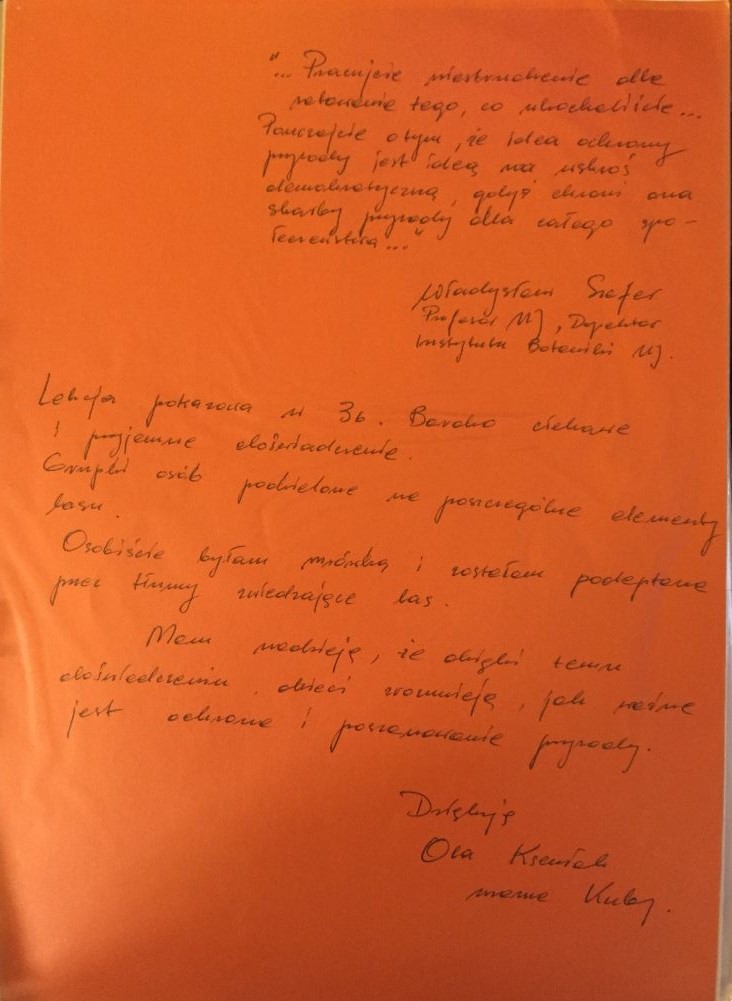 "... Pracujcie niestrudzenie dla
ratowania tego, co ukochaliście...
Pamiętajcie o tym, że idea ochrony
przyrody jest ideą na wskroś
demokratyczną, gdyż chroni ona
skarby przyrody dla całego spo-
łeczeństwa..."
Władysław Szafer
Profesor UJ, Dyrektor
Instytutu Botaniki UJ.
Lekcja pokazowa w 3b. Bardzo ciekawe
i przyjemne doświadczenie.
Grupki osób podzielone na poszczególne elementy
lasu.
Osobiście byłam mrówką i zostałam podeptana
przez tłumy zwiedzające las.
Mam nadzieję, że dzięki temu
doświadczeniu, dzieci zrozumieją, jak ważne
jest ochrona i poszanowanie przyrody.
Dziękuję
Ola
mama Kuby.